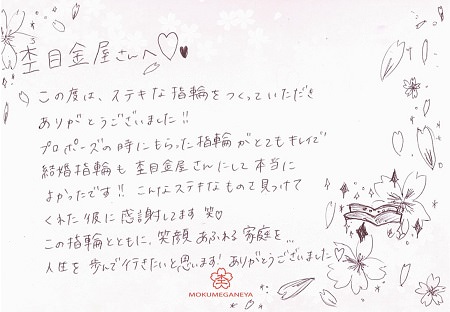 杢目金屋さんへ♡♥
この度は、ステキな指輪をつくっていただき
ありがとうございました!!
プロポーズの時にもらった指輪がとてもキレイで
結婚指輪も杢目金屋さんにして本当に
よかったです!! こんなステキなもので見つけて
くれた彼に感謝してます 笑♡
この指輪とともに、笑顔あふれる家庭を…
人生を歩んで行きたいと思います! ありがとうございました♡
MOKUMEGANEYA